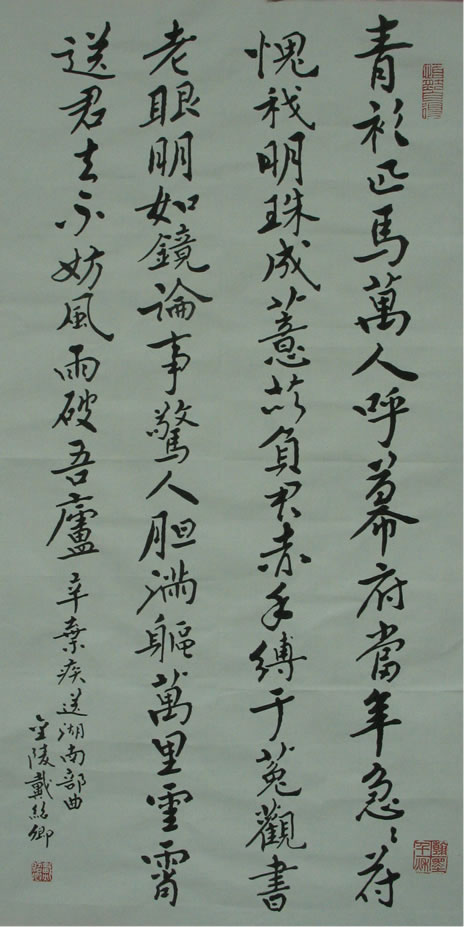 青衫匹馬萬人呼幕府當年急〻符
愧我明珠成薏苡負君赤手縛于菟觀書
老眼明如鏡論事驚人胆滿軀萬里雲霄
送君去不妨風雨破吾廬
辛棄疾送湖南部曲
金陵戴紹卿